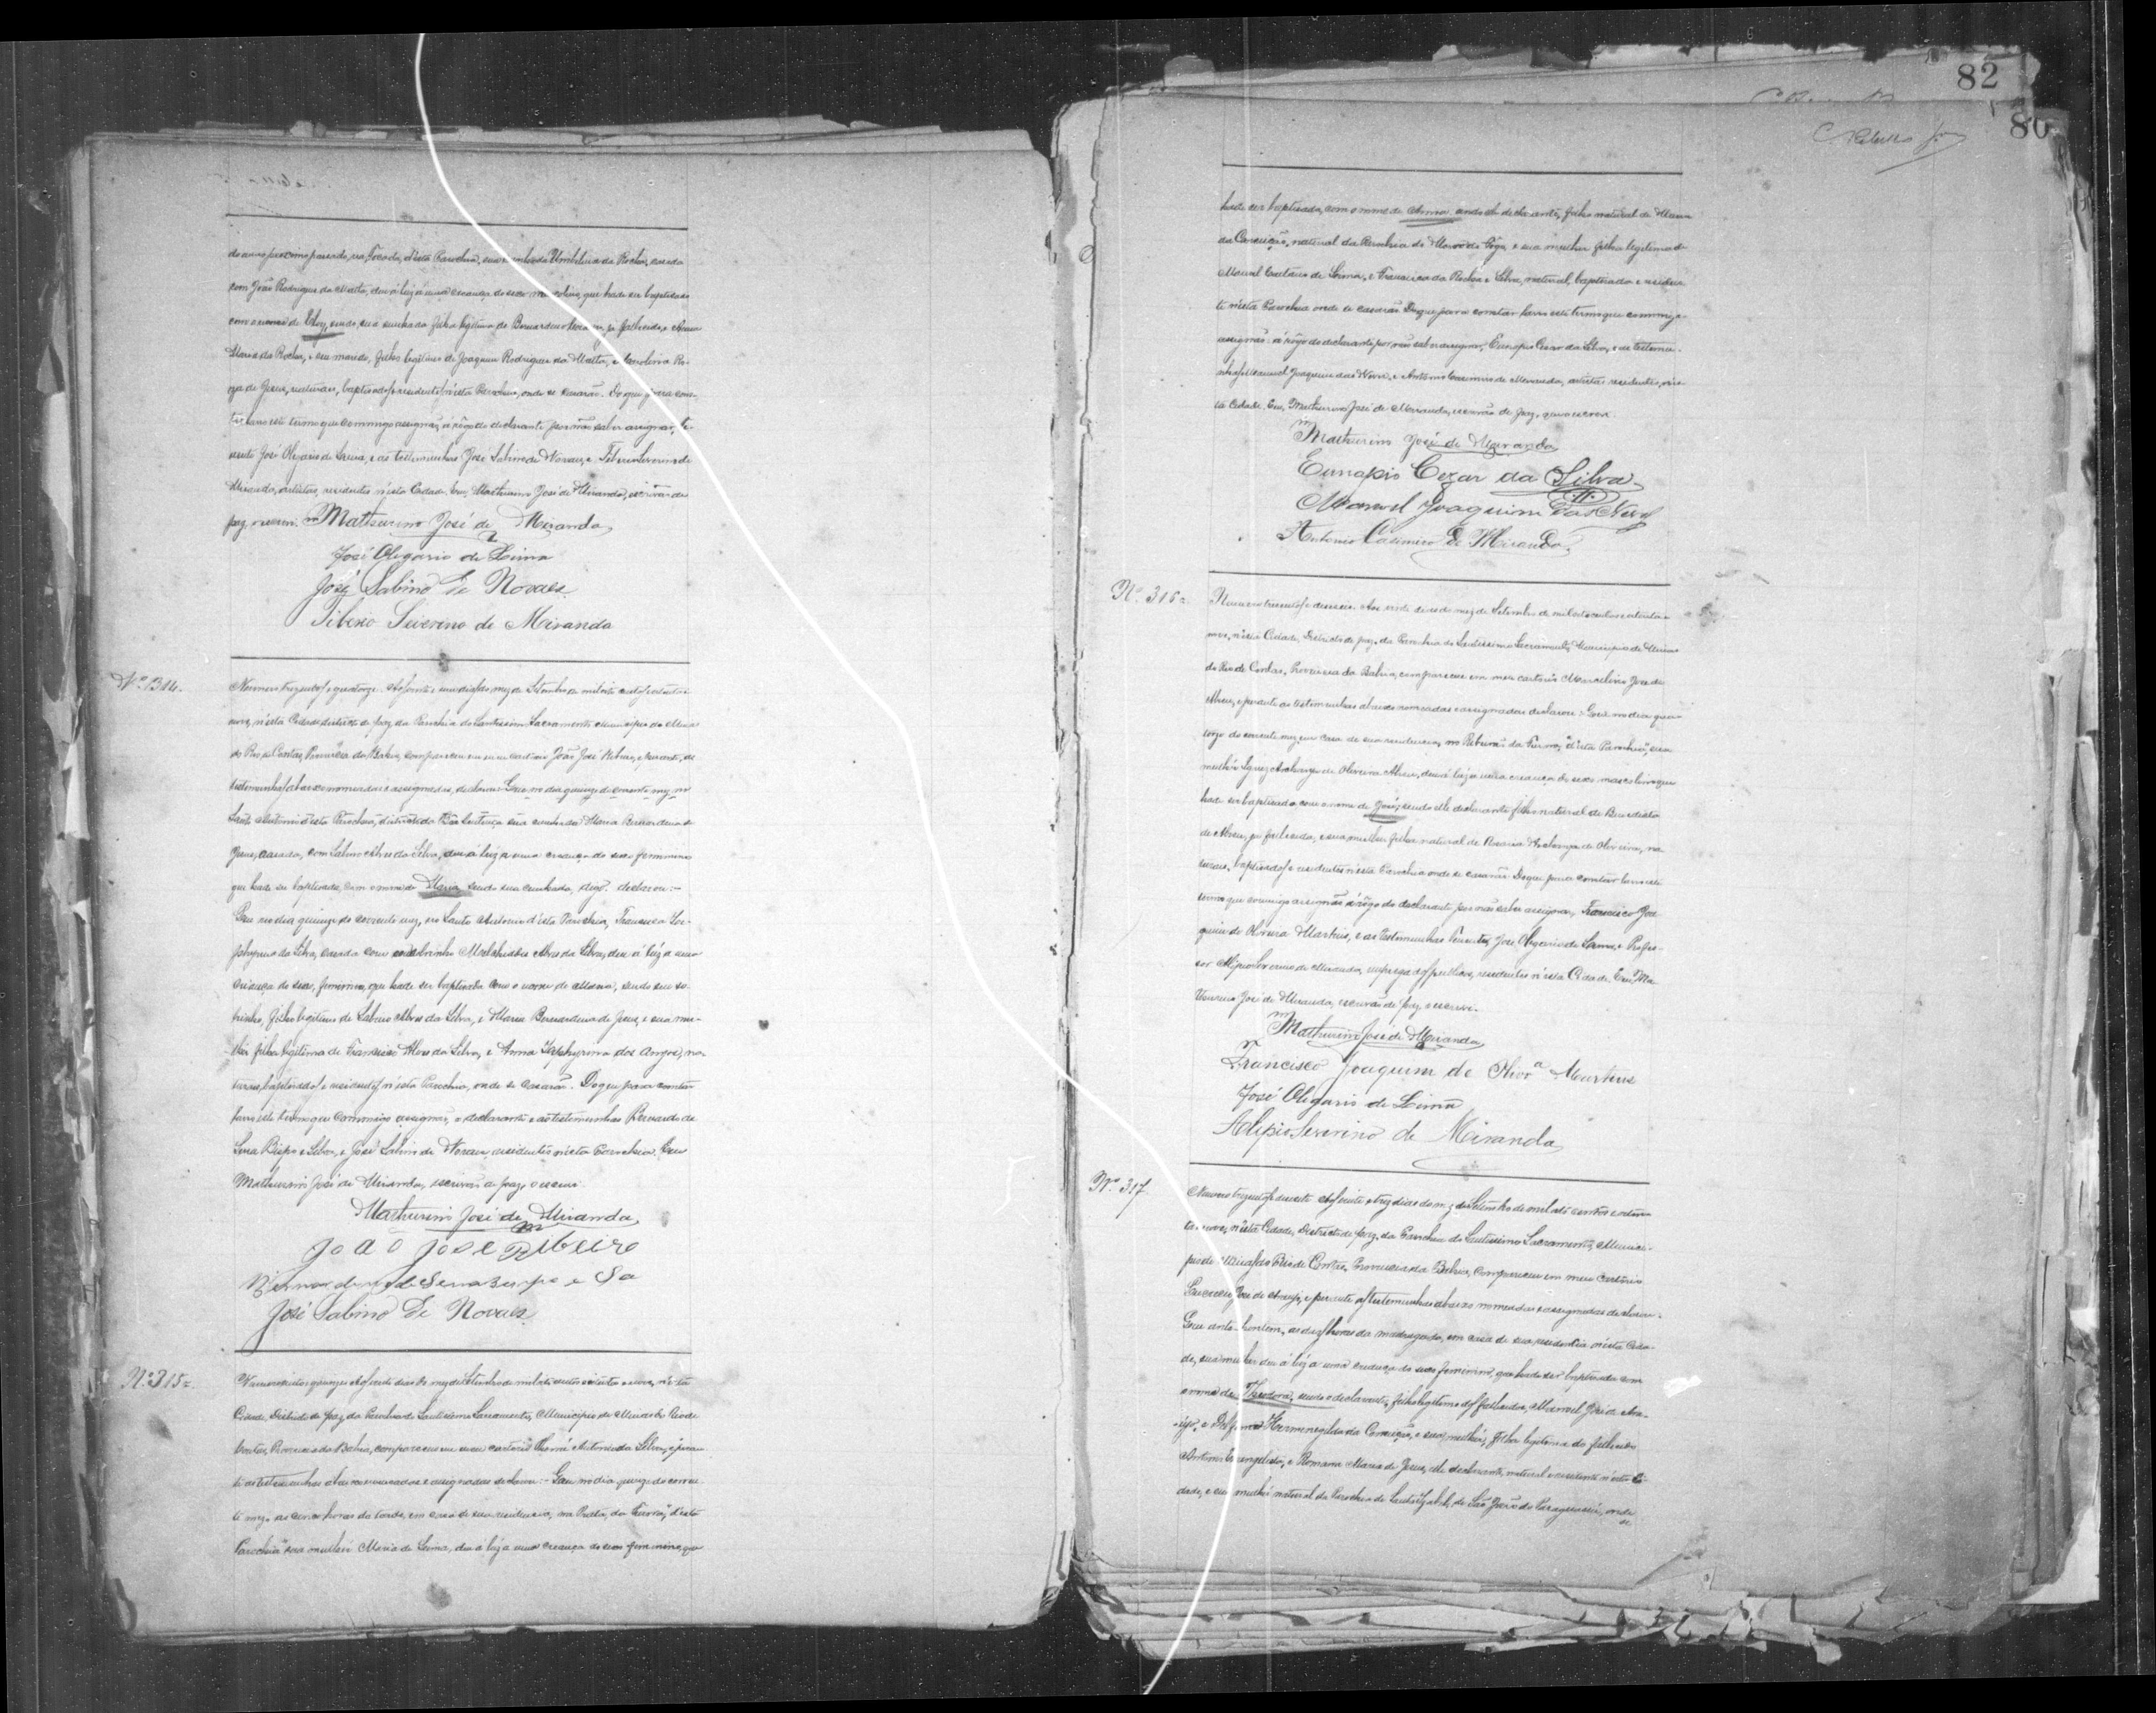 do anno proximo passado, na Tocada, d'esta Parochia, sua cunhada Umbelina da Rocha, casada
com João Rodrigues da Matta, deu á luz a uma creança do sexo masculino, que hade ser baptisado
com o nome de Eloy, sendo sua cunhada filha legitima de Bernardino já fallecido, e Anna
Maria da Rocha, e seu marido, filho legitimo de Joaquim Rodrigues da Matta, e
de Jesus, naturaes, baptisados e residentes n'esta Parochia, onde se casarão. Do que para cons-
tar lavro este termo que commigo assignão, á rôgo do declarante por não saber assignar, te-
nente José Olegario de Lima, e as testemunhas José Sabino de Novaes, e Tiberio Severino de
Miranda, artistas, residentes n'esta Cidade. Eu, Mathurino José de Miranda, escrivão de
paz, o escrevi. Mathurino José de Miranda
José Olegario de Lima
José Sabino de Novaes
Tiberio Severino de Miranda
Nº 314.
Numero trezentos e quatorze. Aos vinte e um dias do mez de Setembro de mil oito centos e oitenta e
nove, n'esta Cidade, districto de paz da Parochia do Santissimo Sacramento, Municipio de Minas
do Rio de Contas, Provincia da Bahia, compareceu em meu cartorio João José Ribeiro, e perante, as
testemunhas abaixo nomeadas e assignadas, declarou: Que no dia quinze do corrente mez, no
Santo Antonio d'esta Parochia, sua cunhada Maria Bernardina de
Jesus, casada, com Sabino Alves da Silva, deu á luz a uma creança do sexo femenino
que hade ser baptisada, com o nome de Maria, sendo sua cunhada, digo, declarou:-
Que no dia quinze do corrente mez, no Santo Antonio d'esta Parochia, Francisca Ze-
phyrina da Silva, casada com seu sobrinho Melchiades Alves da Silva, deu á lúz a uma
creança do sexo, femenino, que hade ser baptisada com o nome de Maria, sendo seu so-
brinho, filho legitimo de Sabino Alves da Silva, e Maria Bernardina de Jesus, e sua mu-
lher filha legitima de Francisco Alves da Silva, e Anna Zephyrina dos Anjos, na-
turaes, baptisados e residentes n'esta Parochia, onde se casarão. Do que para constar
lavro este termo que commigo assignão, o declarante e as testemunhas Bernardo de
Sena Bispo e Silva, e José Sabino de Novaes, residentes n'esta Parochia. Eu
Mathurino José de Miranda, escrivão de paz, o escrevi.
Mathurino José de Miranda
João José Ribeiro
José Sabino de Novaes
Nº 315
Numero trezentos quinze. Aos vinte dias do mez de Setembro de mil oito centos e oitenta e nove, n'esta
Cidade, Districto de paz da Parochia do Santissimo Sacramento, Municipio de Minas do Rio de
Contas, Provincia da Bahia, compareceu em meu cartorio Thomé Antonio da Silva, e peran-
te as testemunhas abaixo nomeadas e assignadas declarou:- Que no dia quinze do corren-
te mez, as cinco horas da tarde, em casa de sua residencia, na da Furna, d'esta
Parochia sua mulher Maria de Lima, deu a luz a uma creança do sexo femenino, que
82
80
hade ser baptisada, com o nome de Anna, sendo elle declarante, filho natural de Maria
da Conceição, natural da Parochia do Morro do Fogo, e sua mulher filha legitima de
Manoel Caetano de Lima, e Francisca da Rocha e Silva, natural, baptisada e residen-
te n'esta Parochia onde se casarão. Do que para constar lavro este termo que commigo
assignão: á rôgo do declarante por não saber assignar, Eunapio Cezar da Silva, e as testemu-
nhas Manoel Joaquim das Neves, e Antonio Casimiro de Miranda, artistas residentes, n'es-
ta Cidade. Eu, Mathurino José de Miranda, escrivão de paz, que o escrevi.
Mathurino José de Miranda
Eunapio Cezar da Silva
Manoel Joaquim das Neves
Antonio Casimiro de Miranda
Nº 316
Numero trezentos e deseseis. Aos vinte do mez de Setembro de mil oito centos e oitenta e
nove, n'esta Cidade, Districto de paz, da Parochia do Santissimo Sacramento, Municipio de Minas
do Rio de Contas, Provincia da Bahia, compareceu em meu cartorio Marcelino José de
Abreu, e perante as testemunhas abaixo nomeadas e assignadas declarou: Que no dia qua-
torze do corrente mez, em casa de sua residencia, no Ribeirão da Furna, d'esta Parochia, sua
mulher Ignez Archanja de Oliveira Abreu, deu á luz a uma creança do sexo masculino que
hade ser baptisado, com o nome de José, sendo elle declarante filho natural de Benedicta
de Abreu, já fallecida, e sua mulher filha natural de Rosaria Archanja de Oliveira, na-
turaes, baptisados e residentes n'esta Parochia onde se casarão. Do que para constar lavro este
termo que commigo assignão á rôgo do declarante por não saber assignar, Francisco Joa-
quim de Oliveira Martins, e as testemunhas Tenente, José Olegario de Lima, e Profes-
sor Alipio Severino de Miranda, empregados publicos, residentes n'esta Cidade. Eu, Ma-
thurino José de Miranda, escrivão de paz, o escrevi.
Mathurino José de Miranda
Francisco Joaquim de Olivrª Martins
José Olegario de Lima
Alipio Severino de Miranda
Nº 317
Numero trezentos desesete. Aos vinte e trez dias do mez de Setembro de mil oito centos e oiten-
ta e nove, n'esta Cidade, Districto de paz, da Parochia do Santissimo Sacramento, Munici-
pio de Minas do Rio de Contas, Provincia da Bahia, compareceu em meu cartorio
José de Araujo, e perante as testemunhas abaixo nomeadas e assignadas declarou.
Que ante-hontem, as dez horas da madrugada, em casa de sua residencia n'esta Cida-
de, sua mulher deu á lúz a uma creança do sexo femenino, que hade ser baptisada com
o nome de Theodora, sendo o declarante, filho legitimo dos fallecidos, Manoel José de Ara-
ujo, e Hermenegilda da Conceição, e sua mulher, filha legitima do fallecido
Antonio Evangelista, e Romana Maria de Jesus, elle declarante, natural e residente n'esta Ci-
dade, e sua mulher natural da Parochia de Santa Izabel, de São João do Paraguassú, onde
se